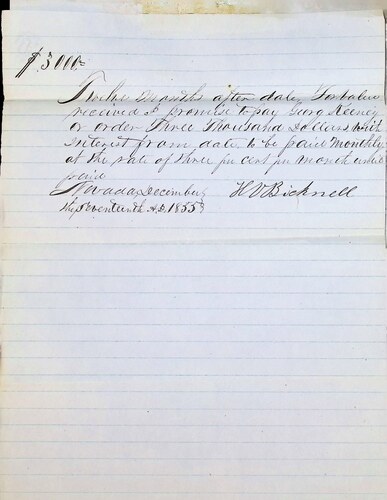 $3.000=
Twelve Months after date, for value
received I promise to pay Georg Keeney
or order Three Thousand Dollars with
Interest from date to be paid Monthly
at the rate of three per cent per month until
paid
Nevada, December H V Bicknell
the Seventeenth A.D. 1855